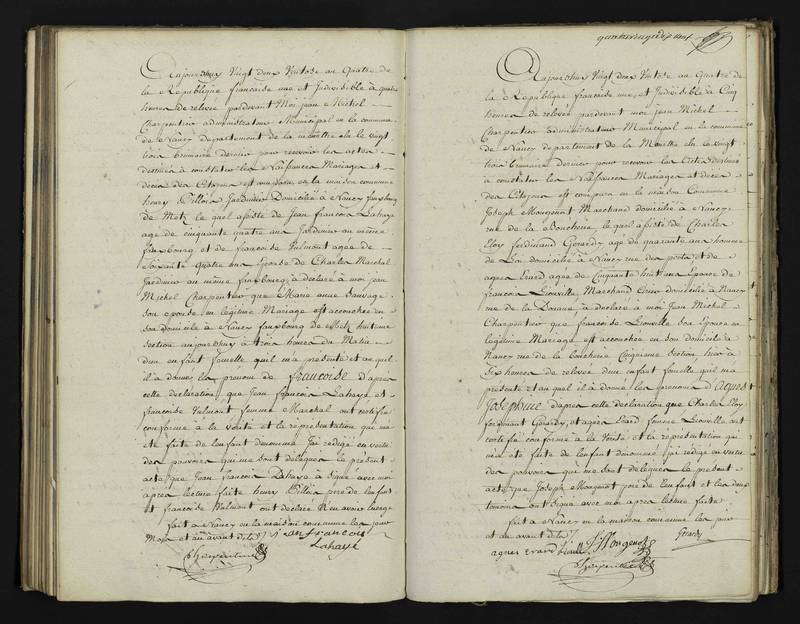 Aujourdhuy Vingt deux Ventose an Quatre de
la Republique francaise une et Indivisible à quatre
heures de relevée pardevant Moi jean Michel
Charpentier administrateur Municipal en la commune
de Nancy département de la meurthe élu le vingt
trois Brumaire dernier pour recevoir les actes
destinés à constater les Naissances Mariages et
deces des Citoyens est comparu en la maison commune
henry Billois Jardinier Domicilié à Nancy fauxbourg
de Metz le quel assisté de Jean francois Lahaye
agé de cinquante quatre ans Jardinier au même
fauxbourg et de francoise Vulmont agée de
soixante quatre ans Epouse de Charles Marchal
Jardinier au même fauxbourg, à déclaré à moi jean
Michel Charpentier que Marie anne Sauvage
son epouse en legitime Mariage est accouchée en
son domicile à Nancy fauxbourg de Metz huitieme
Section aujourdhuy à trois heures du Matin
dun enfant femelle quil m'a présenté et au quel
il à donné le prénom de francoise d'après
cette déclaration que Jean francois Lahaye et
francoise Vulmont femme Marchal ont certifié
conforme à la vérité et la représentation qui m'a
eté faite de l'enfant dénommé J'ai rédigé en vertu
des pouvoirs qui me sont délégués le présent
acte, que Jean francois Lahaye à signé avec moi
apres lecture faite henry Billois pere de l'enfant
et francoise Vulmont ont déclaré N'en avoir l'usage
fait à Nancy en la maison commune les jour
Mois et an avant dits jean francois
Lahaye
Charpentier
Aujourdhuy Vingt deux Ventose an Quatre de
la Republique francaise une et Indivisible à Cinq
heures de relevée pardevant moi jean Michel
Charpentier administrateur Municipal en la commune
de Nancy departement de la Meurthe élu le vingt
trois Brumaire Dernier pour recevoir les Actes destinés
à constater les Naissances Mariages et deces
des Citoyens est comparu en la maison Commune
Joseph Mougenot Marchand domicilié à Nancy
rue de la Boucherie, le quel assisté de Charles
Eloy ferdinand Gerardy agé de quarante ans homme
de Loi domicilié à Nancy rue des ponts et de
agnes Erard agée de Cinquante huit ans épouse de
francois Lionville Marchand domicilié à Nancy
rue de la Douane à déclaré à moi Jean Michel
Charpentier que francoise Lionville Son épouse en
legitime Mariage est accouchée en son domicile à
Nancy rue de la Boucherie Cinquieme Section, hier à
Six heures de relevée dun enfant femelle quil m'a
présenté et au quel il à donné les prénoms d'Agnes
Josephine d'apres cette déclaration que Charles Eloy
ferdinand Gerardy, et agnes Erard femme Lionville ont
certifié conforme à la Vérité et la représentation qui
m'a eté faite de l'enfant dénommé j'ai rédigé en vertu
des pouvoirs qui me sont délégués le présent
acte, que Joseph Mougenot pere de l'enfant et les deux
temoins ont signé avec moi apres lecture faite
fait à Nancy en la maison commune les jour
et an avant dits
agnes Erard J Mougenot Gerardy
Charpentier